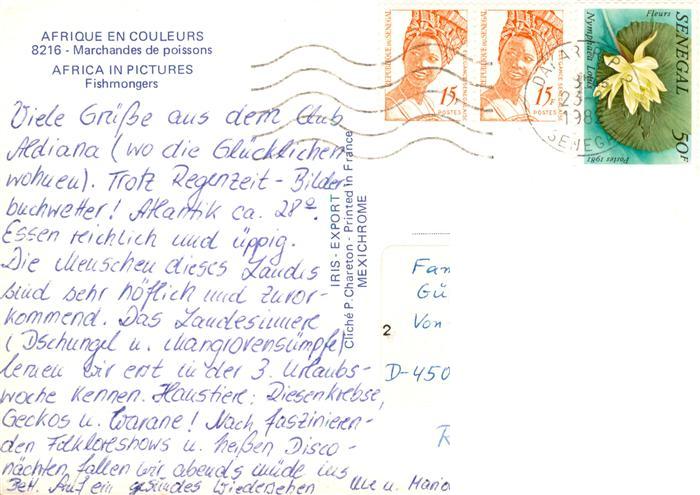 AFRIQUE EN COULEURS
8216 - Marchandes de poissons
AFRICA IN PICTURES
Fishmongers
Viele Grüße aus dem Club
Aldiana (wo die Glücklichen
wohnen). Trotz Regenzeit - Bilder-
buchwetter! Atlantik ca. 28°.
Essen reichlich und üppig.
Die Menschen dieses Landes
sind sehr höflich und zuvor-
kommend. Das Landesinnere
(Dschungel u. Mangrovensümpfe)
lernen wir erst in der 3. Urlaubs-
woche kennen. Haustiere: Riesenkrebse,
Geckos u. Warane! Nach faszinieren-
den Folkloreshows u. heißen Disco-
nächten fallen wir abends müde ins
Bett. Auf ein gesundes Wiedersehen
Uwe u. Mario
IRIS - EXPORT
Cliché P. Chareton - Printed in France
MEXICHROME
REPUBLIQUE DU SENEGAL
15F
POSTES
REPUBLIQUE DU SENEGAL
15F
POSTES
DAKAR R.P.
23
SENEGAL
Fleurs
Nymphaea Lotus
SENEGAL
Postes 1981
50F
2
Fam
Gü
Von
D-450